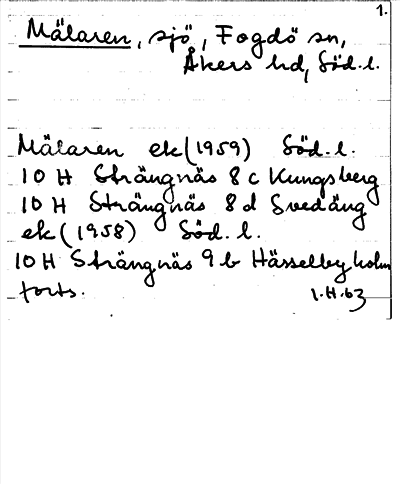 1.
Mälaren, sjö, Fogdö sn,
Åkers hd, Söd.l.
Mälaren ek(1959) Söd.l.
10 H Strängnäs 8 c Kungsberg
10 H Strängnäs 8 d Svedäng
ek(1958) Söd.l.
10 H Strängnäs 9 b Hässelbyholm
forts. 1.H.63